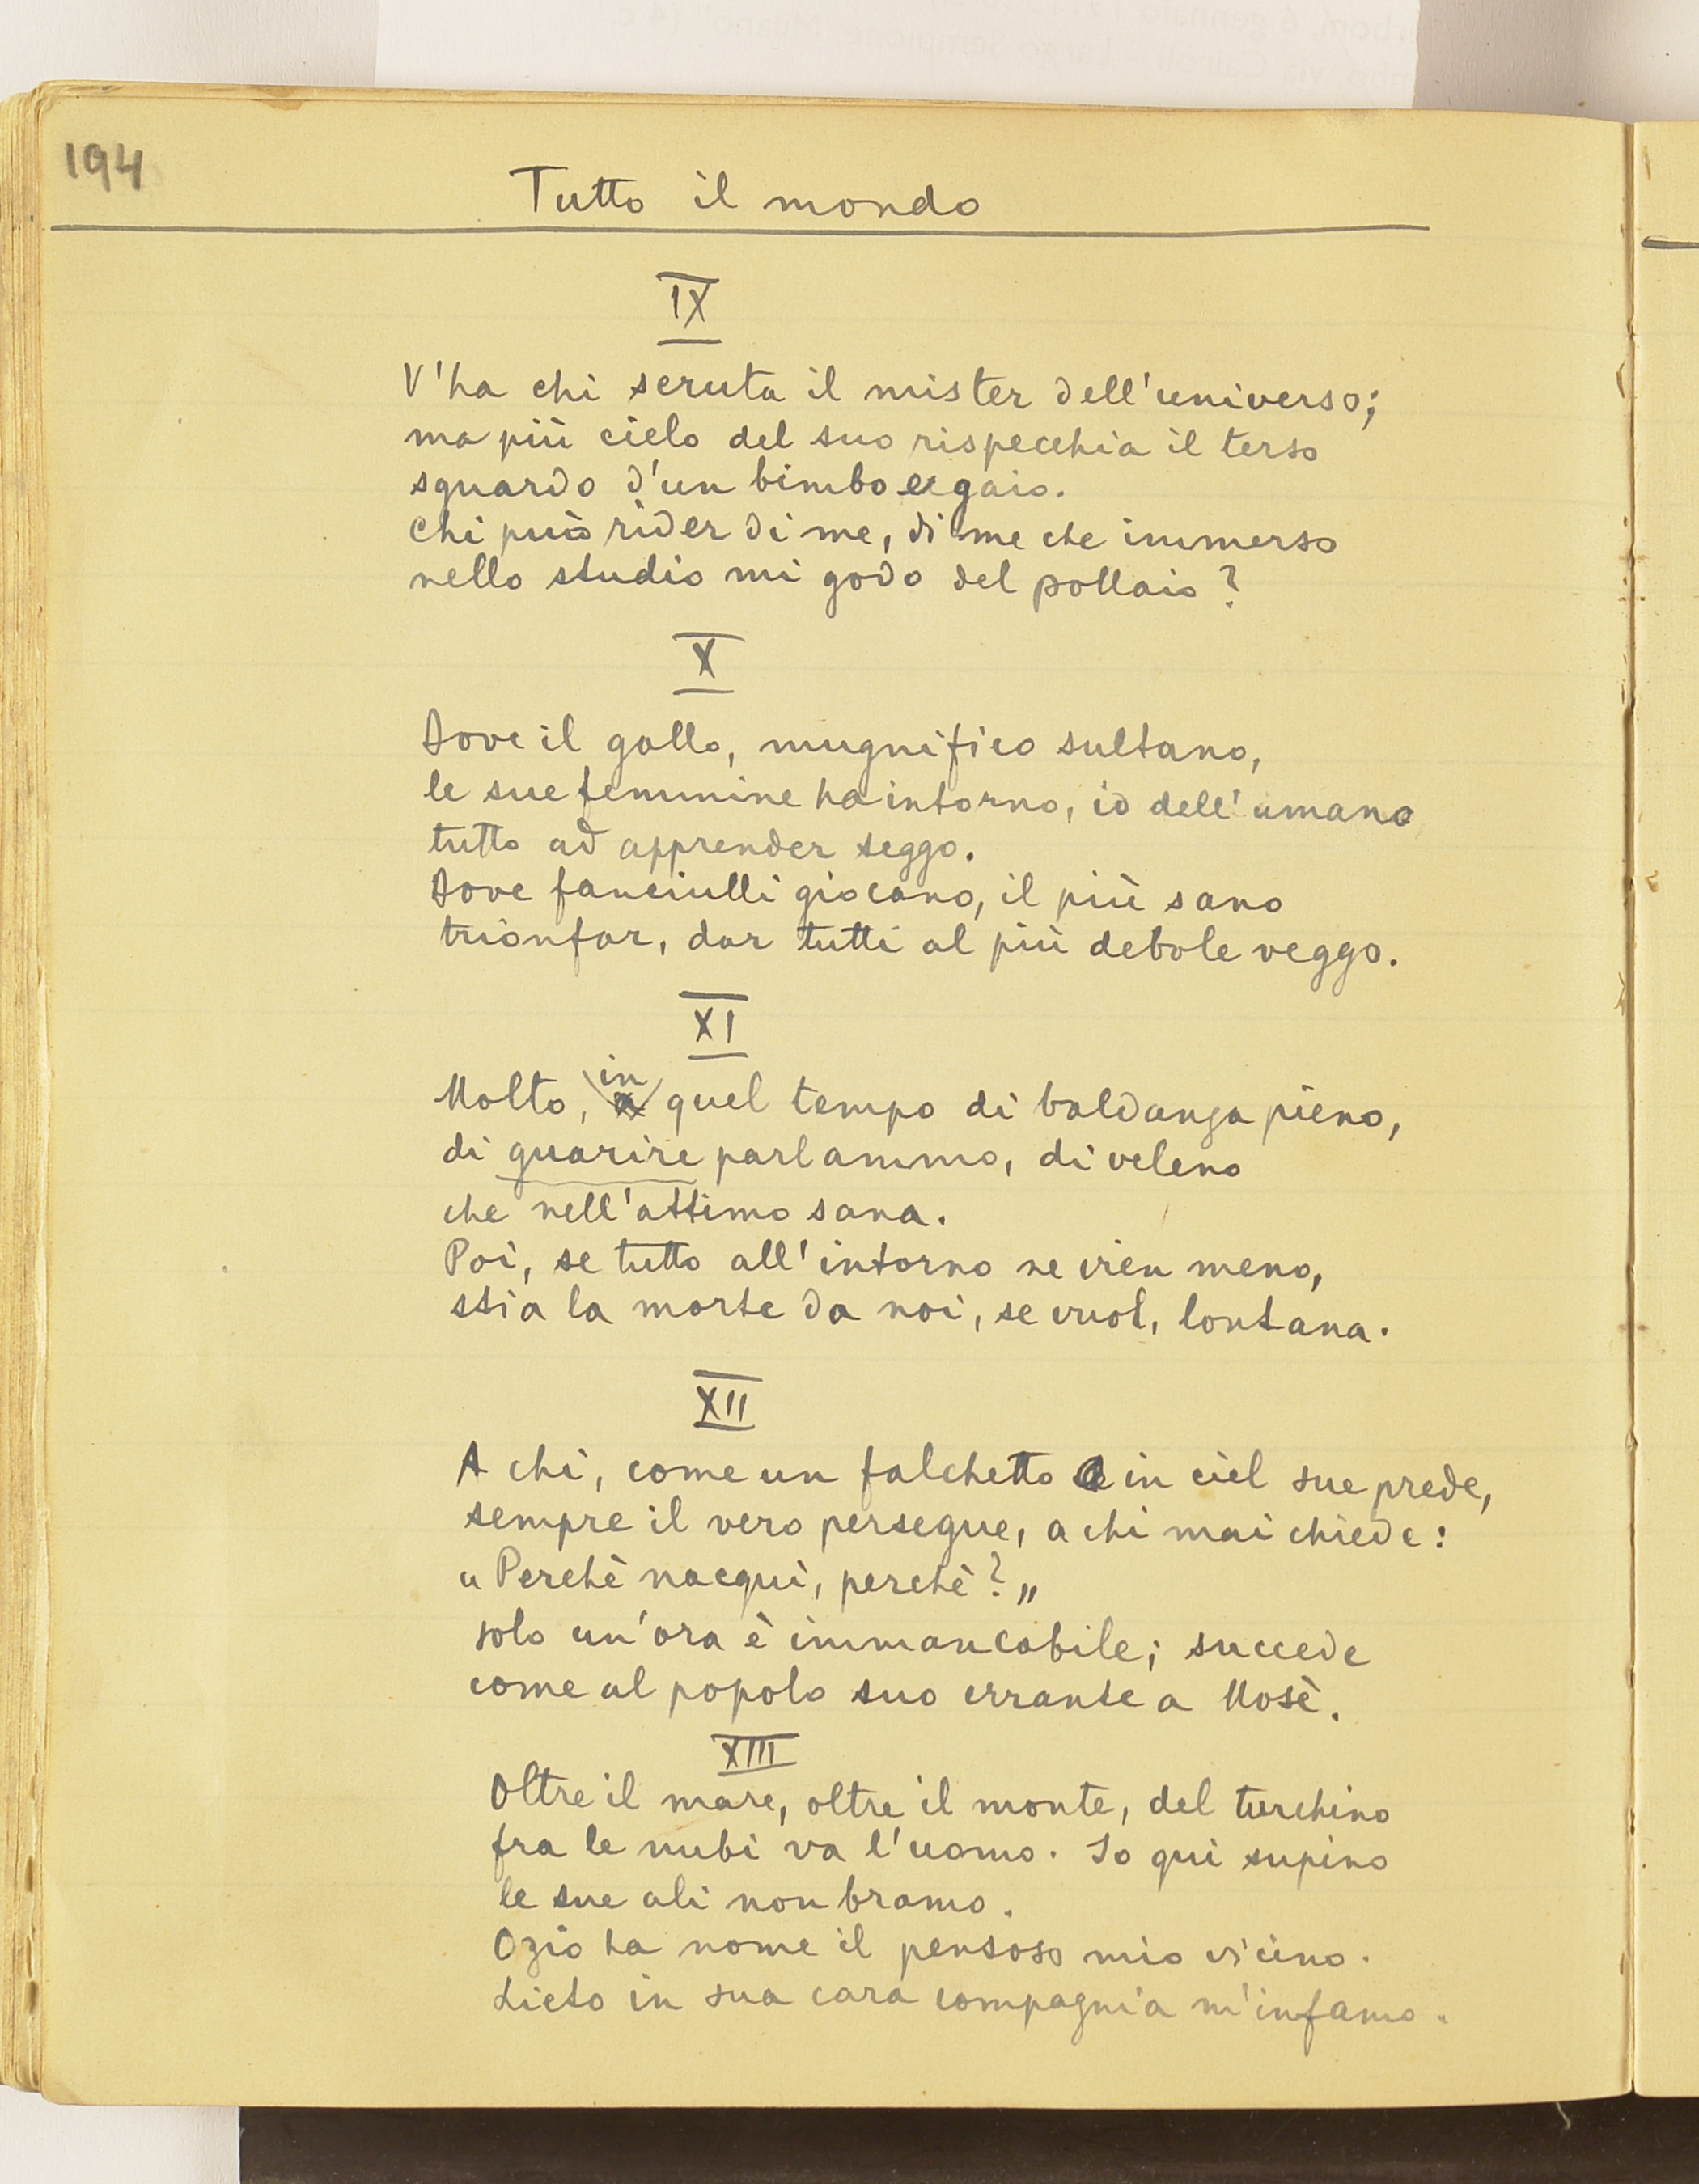 194
Tutto il mondo
IX
V'ha chi scruta il mister dell'universo;
ma più cielo del suo rispecchia il terso
sguardo d'un bimbo e gaio.
Chi può rider di me, di me che immerso
nello studio mi godo del pollaio?
X
Dove il gallo, magnifico sultano,
le sue femmine ha intorno, io dell'umano
tutto ad apprender seggo.
Dove fanciulli giocano, il più sano
trionfar, dar tutti al più debole veggo.
XI
Molto, in quel tempo di baldanza pieno,
di guarire parlammo, di veleno
che nell'attimo sana.
Poi, se tutto all'intorno ne vien meno,
stia la morte da noi, se vuol, lontana.
XII
A chi, come un falchetto in ciel sue prede,
sempre il vero persegue, a chi mai chiede:
„Perchè nacqui, perchè?„
solo un'ora è immancabile; succede
come al popolo suo errante a Mosè.
XIII
Oltre il mare, oltre il monte, del turchino
fra le nubi va l'uomo. Io qui supino
le sue ali non bramo.
Ozio ha nome il pensoso mio vicino.
Lieto in sua cara compagnia m'infamo.